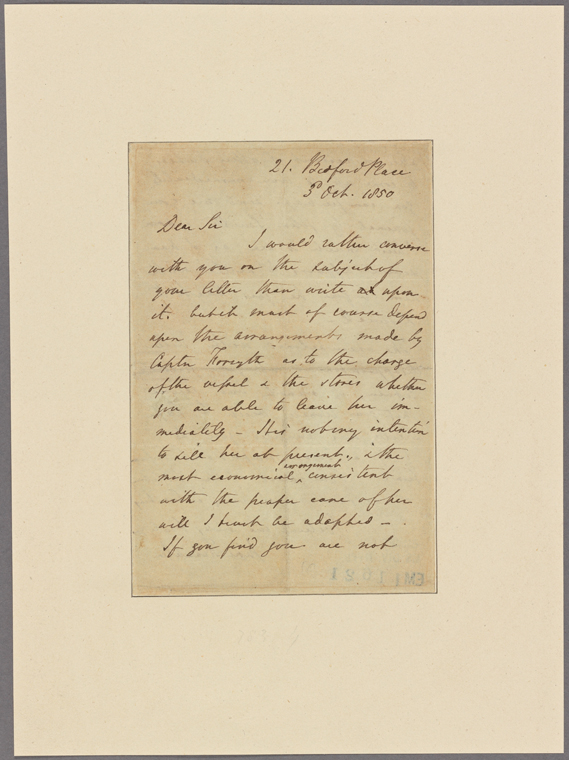 21. Bedford Place
3d Oct. 1850
Dear Sir
I would rather converse
with you on the subject of
your letter than write upon
it, but it must of course depend
upon the arrangements made by
Captn Forsyth as to the charge
of the vessel & the stores whether
you are able to leave her im-
mediately - It is not my intention
to sell her at present, & the
most economical arrangement consistent
with the proper care of her
will I trust be adopted -.
If you find you are not